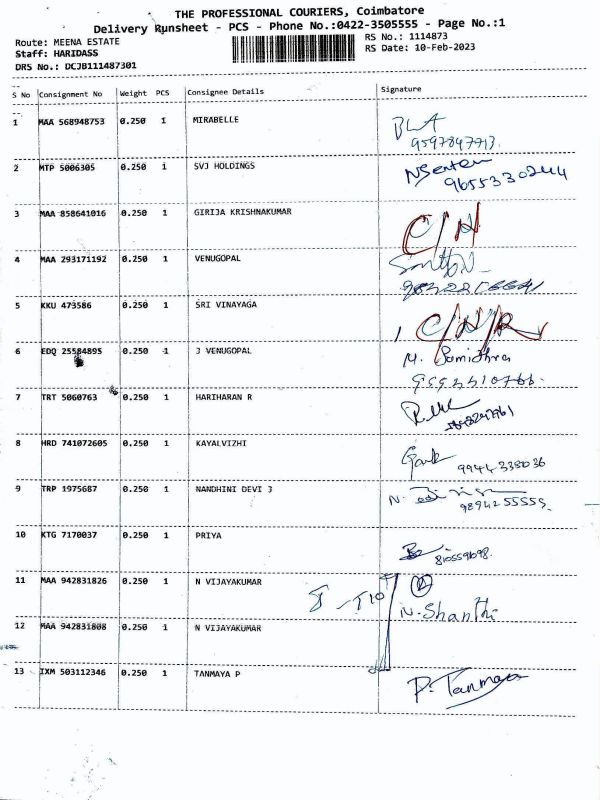 THE PROFESSIONAL COURIERS, Coimbatore
Delivery Runsheet - PCS - Phone No.:0422-3505555 - Page No.:1
Route: MEENA ESTATE RS No.: 1114873
Staff: HARIDASS RS Date: 10-Feb-2023
DRS No.: DCJB111487301
S No Consignment No Weight PCS Consignee Details Signature
1 MAA 568948753 0.250 1 MIRABELLE
9597847713
2 MTP 5006305 0.250 1 SVJ HOLDINGS
9655330244
3 MAA 858641016 0.250 1 GIRIJA KRISHNAKUMAR C/N
4 MAA 293171192 0.250 1 VENUGOPAL
5 KKU 473586 0.250 1 SRI VINAYAGA C/N/R
6 EDQ 25584895 0.250 1 J VENUGOPAL M.
7 TRT 5060763 0.250 1 HARIHARAN R
8 HRD 741072605 0.250 1 KAYALVIZHI
9944338036
9 TRP 1975687 0.250 1 NANDHINI DEVI J N.
9894255555
10 KTG 7170037 0.250 1 PRIYA
11 MAA 942831826 0.250 1 N VIJAYAKUMAR
N. Shanthi
12 MAA 942831808 0.250 1 N VIJAYAKUMAR
13 IXM 503112346 0.250 1 TANMAYA P P. Tanmaya